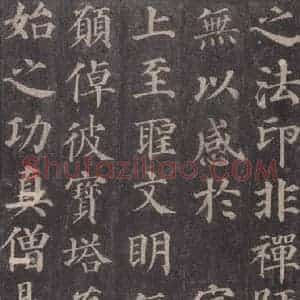 之法印非禪師
無以感於
上至聖文明
願倬彼寶塔
始之功真僧
Shufaziliao.COM